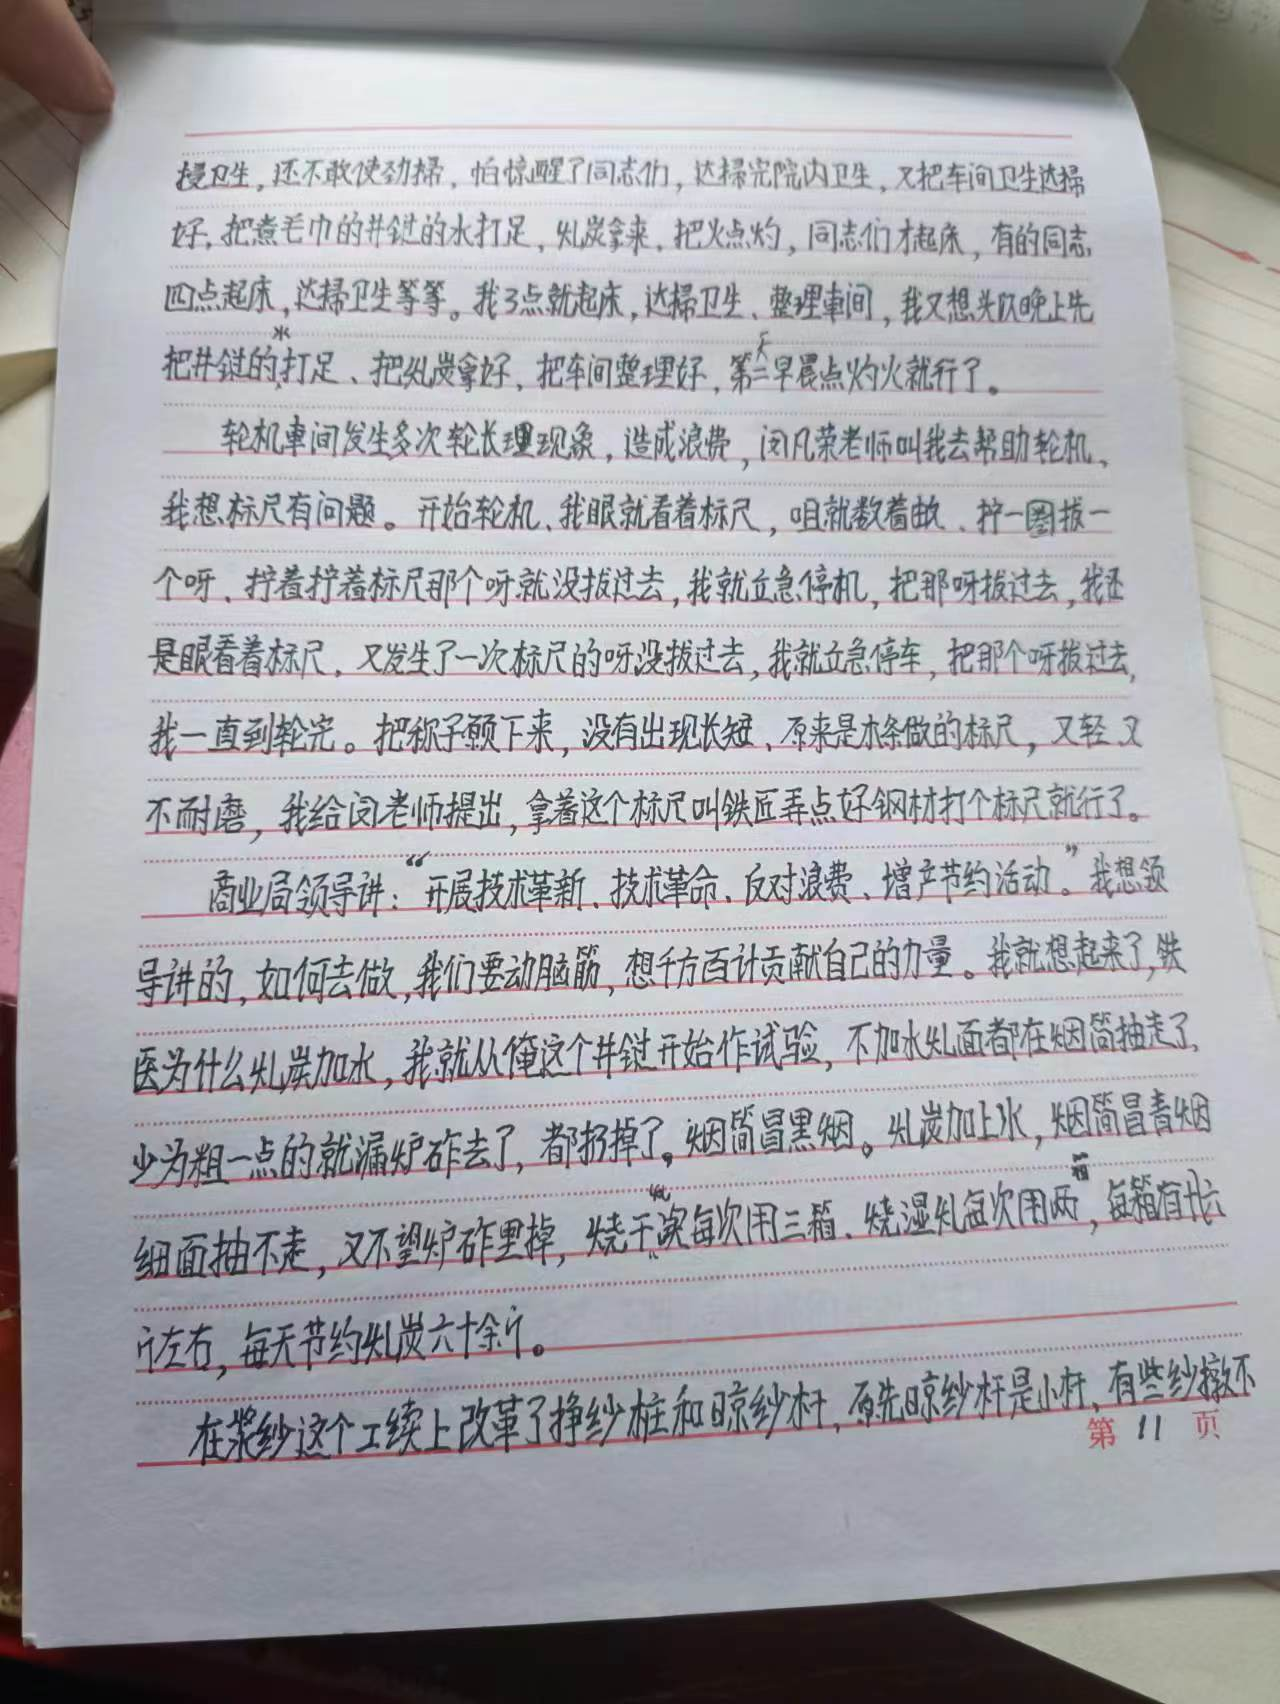 扫卫生，还不敢使劲掃，怕惊醒了同志们，达掃完院内卫生，又把车间卫生达掃
好，把煮毛巾的井鍅的水打足，火乚炭拿来，把火点灼，同志们才起床，有的同志
四点起床，达掃卫生等等。我3点就起床，达掃卫生、整理車间，我又想头以晚上先
把井鍅的水打足、把火乚炭拿好，把车间整理好，第二天早晨点灼火就行了。
轮机車间发生多次轮长理现象，造成浪费，闵凡荣老师叫我去帮助轮机、
我想标尺有问题。开始轮机、我眼就看着标尺，咀就数着、拧一圈拔一
个呀、拧着拧着标尺那个呀就没拔过去，我就立急停机，把那呀拔过去，我还
是眼看着标尺，又发生了一次标尺的呀没拔过去，我就立急停车，把那个呀拔过去，
我一直到轮完。把称子下来，没有出现长短、原来是木条做的标尺，又轻又
不耐磨，我给闵老师提出，拿着这个标尺叫铁匠弄点好钢材打个标尺就行了。
商业局领导讲：“开展技术革新、技术革命、反对浪费、增产节约活动。”我想领
导讲的，如何去做，我们要动脑筋，想千方百计贡献自己的力量。我就想起来了，铁
医为什么火乚炭加水，我就从俺这个井鍅开始作试验，不加水火乚面都在烟筒抽走了，
少为粗一点的就漏炉砟去了，都扔掉了。烟筒冒黑烟。火乚炭加上水，烟筒冒青烟
细面抽不走，又不望炉砟里掉，烧干火乚每次用三箱、烧湿火乚每次用两箱，每箱有廿六
斤左右，每天节约火乚炭六十余斤。
在浆纱这个工续上改革了挣纱桩和晾纱杆，原先晾纱杆是小杆，有些纱撴不
第 11 页